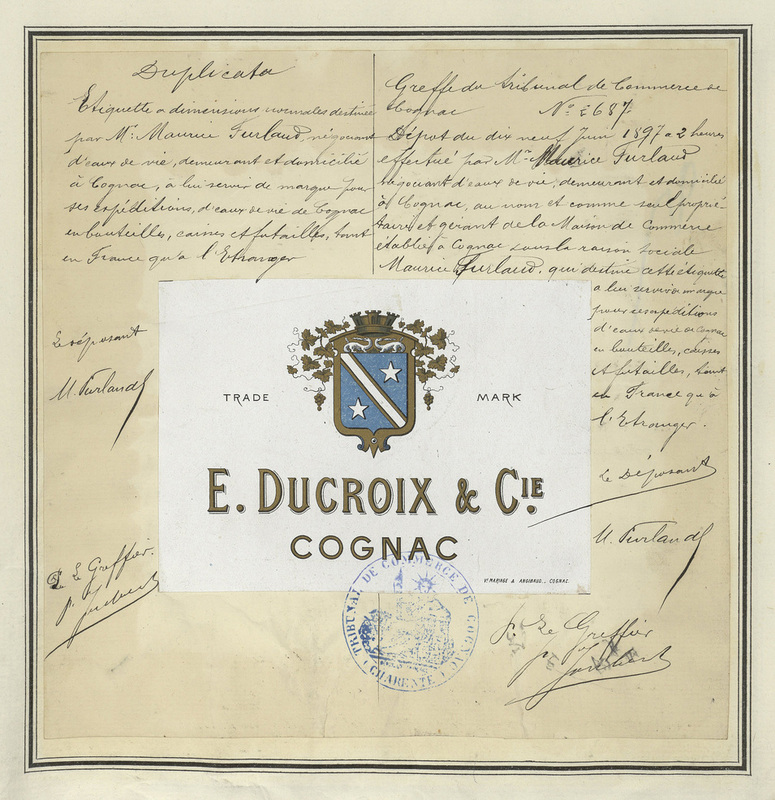 Duplicata
Etiquette a dimensions normales destinée
par Mr. Maurice Furlaud, négociant
d'eaux de vie, demeurant et domicilié
à Cognac, a lui servir de marque pour
ses expéditions, d'eaux de vie de Cognac
en bouteilles, caisses et futailles, tant
en France qu'a l'Etranger
Le déposant
M. Furlaud
Le Greffier
Greffe du tribunal de Commerce de
Cognac N° 2687
Dépot du dix neuf Juin 1897 a 2 heures
effectué par Mr Maurice Furlaud
négociant d'eaux de vie, demeurant et domicilié
à Cognac, au nom et comme seul proprié
taire et gérant de la Maison de Commerce
établie à Cognac sous la raison sociale
Maurice Furlaud, qui destine cette étiquette
a leur servir de marque
pour ses expéditions
d'eaux de vie de Cognac
en bouteilles, caisses
et futailles, tant
en France qu'à
l'Etranger.
Le Déposant
M. Furlaud
p. Le Greffier
TRADE MARK
E. DUCROIX & CIE.
COGNAC
VE MARIAGE & ANGIBAUD, COGNAC
TRIBUNAL DE COMMERCE DE COGNAC
(CHARENTE)